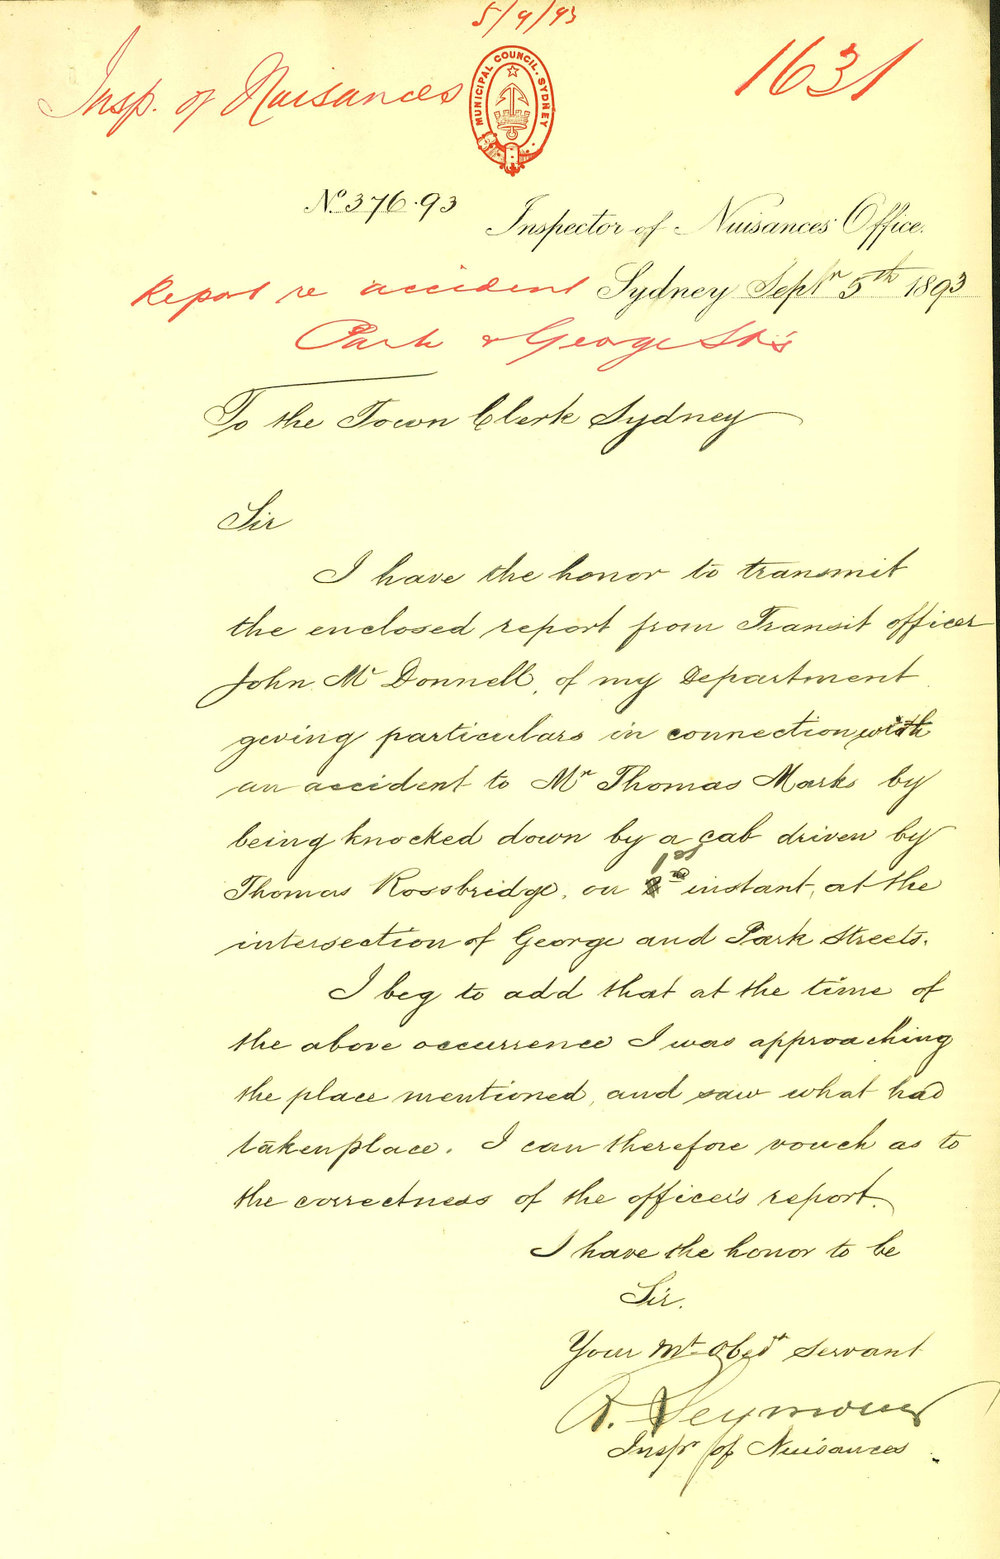 5/9/93
Insp. of Nuisances
MUNICIPAL COUNCIL. SYDNEY
1631
No. 376.93
Inspector of Nuisances Office.
Report re accident
Sydney Septr 5th 1893
Park & George Sts
To the Town Clerk Sydney
Sir
I have the honor to transmit
the enclosed report from Transit officer
John Mc Donnell, of my Department
geving particulars in connection with
an accident to Mr Thomas Marks by
being knocked down by a cab driven by
Thomas Rossbridge, on 1st instant, at the
intersection of George and Park Streets.
I beg to add that at the time of
the above occurrence I was approaching
the place mentioned, and saw what had
taken place. I can therefore vouch as to
the correctness of the officer's report.
I have the honor to be
Sir.
Your Mt Obedt servant
R. Seymour
Inspr of Nuisances